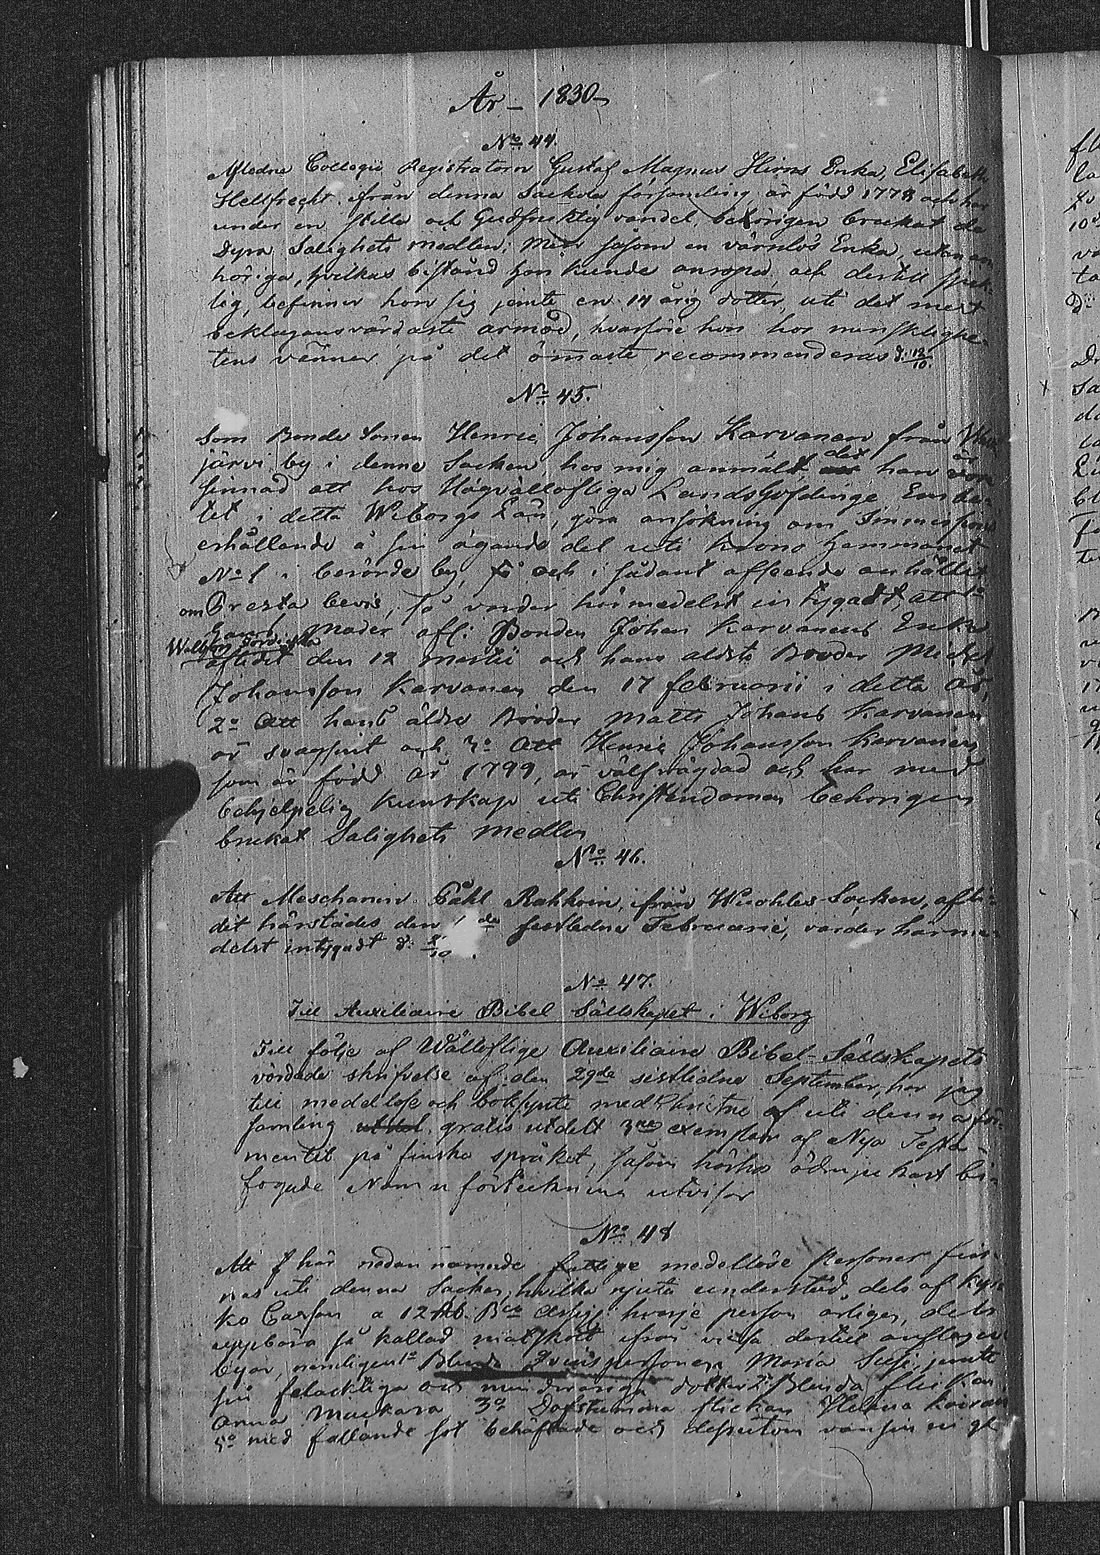 År - 1830
No 44.
Afledne Collegii Registratorn Gustaf Magnus Hirns Enka, Elisabeth
Hellfrecht, ifrån denna Sockne församling, är född 1778 och har
under en stilla och Gudfrucktig vandel, behörigen bruckat de
Dyra Salighets medlen; Men såsom en värnlös Enka, utan an
höriga, hvilkas bistånd hon kunde anropa, och dertill sjuk
lig, befinner hon sig jemte en 14 årig dotter, uti det mest
beklagansvärdaste armod, hvarföre hon hos mensklighe-
tens vänner på det ömaste recommenderas d: 13/10.
No 45.
Som Bonde Sonen Henric Johansson Karvanen från
järvi by i denne Socken hos mig anmält det han
sinnad att hos Högvällofliga Landshöfdinge Embe
tet i detta Wiborgs Län, göra ansökning om Immission
erhållande å sin ägande del uti Krono hemmanet
No 1 i berörde by, och i sådant afseende anhållit
om Presta bevis; så varder härmedelst intygadt, att 1o
hans Moder afl: Bonden Johan Karvanens Enka
Walborg
aflidit den 12 Martii och hans äldste Broder Michel
Johansson Karvanen den 17 Februarii i detta år,
2o Att hans äldre Broder Matts Johans Karvanen
är svagsint och 3o Att Henric Johansson Karvanen
som är född år 1799, är välfrägdad och har med
behjelpelig kunskap uti Christendomen behörigen
brukat Salighets medlen
No 46.
Att Meschanin Påhl Rahkoin, ifrån Socken, afli-
dit härstädes den de sestledne Februarii, varder härme-
delst intygadt d: /10.
No 47.
Till Auxiliaire Bibel Sällskapet i Wiborg
Till följe af Wällofliga Auxiliaire Bibel-Sällskapets
vördade skrifvelse af den 29de sistlidne September, har jag
till medellöse och boksynte medChristne af uti denna för-
samling gratis utdelt exemplar af Nya Testa-
mentet på finska språket, såsom härhos bi-
fogade Namn förteckning utvisar
No 48
Att här nedan nämnde fattige medellöse Personer fin-
nas uti denna Socken, hvilka njuta understöd dels af Kyr
ko Cassan a 12 Rb. Bco Assign: hvarje person årligen, dels
uppbära så kallad matskott ifrån vissa dertill anslagen
byar, nemligen 1o Blinda Qvinspersonen Maria jemte
sin felacktiga och minderåriga dotter 2o Blinda flickan
Anna Muckara 3o Döfstumma flickan Helena
5o med fallande sot behäftade och dessutom vansinnige